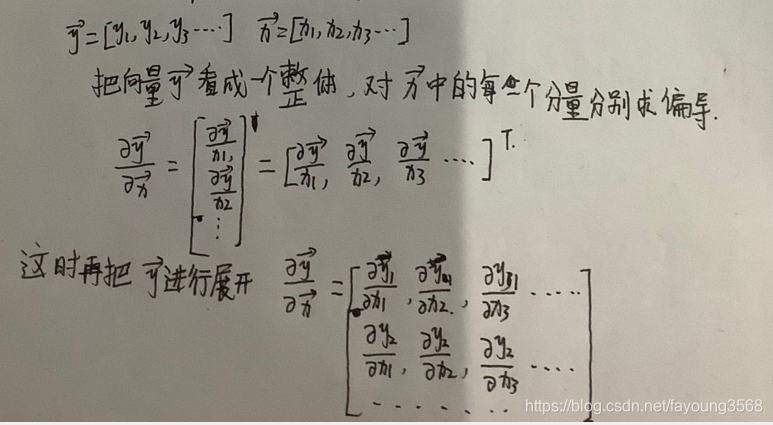 y⃗=[y₁,y₂,y₃····] x⃗=[x₁,x₂,x₃···]
把向量y⃗看成一个整体,对x⃗中的每一个分量分别求偏导.
∂y⃗/∂x⃗ = [∂y⃗/x₁, ∂y⃗/x₂ ⋮] = [∂y⃗/x₁, ∂y⃗/x₂, ∂y⃗/x₃ ····]ᵀ.
这时再把y⃗进行展开 ∂y⃗/∂x⃗ = [∂y₁/∂x₁, ∂y₁/∂x₂, ∂y₁/∂x₃ ·····
∂y₂/∂x₁, ∂y₂/∂x₂, ∂y₂/∂x₃ ····
·······]
https://blog.csdn.net/fayoung3568